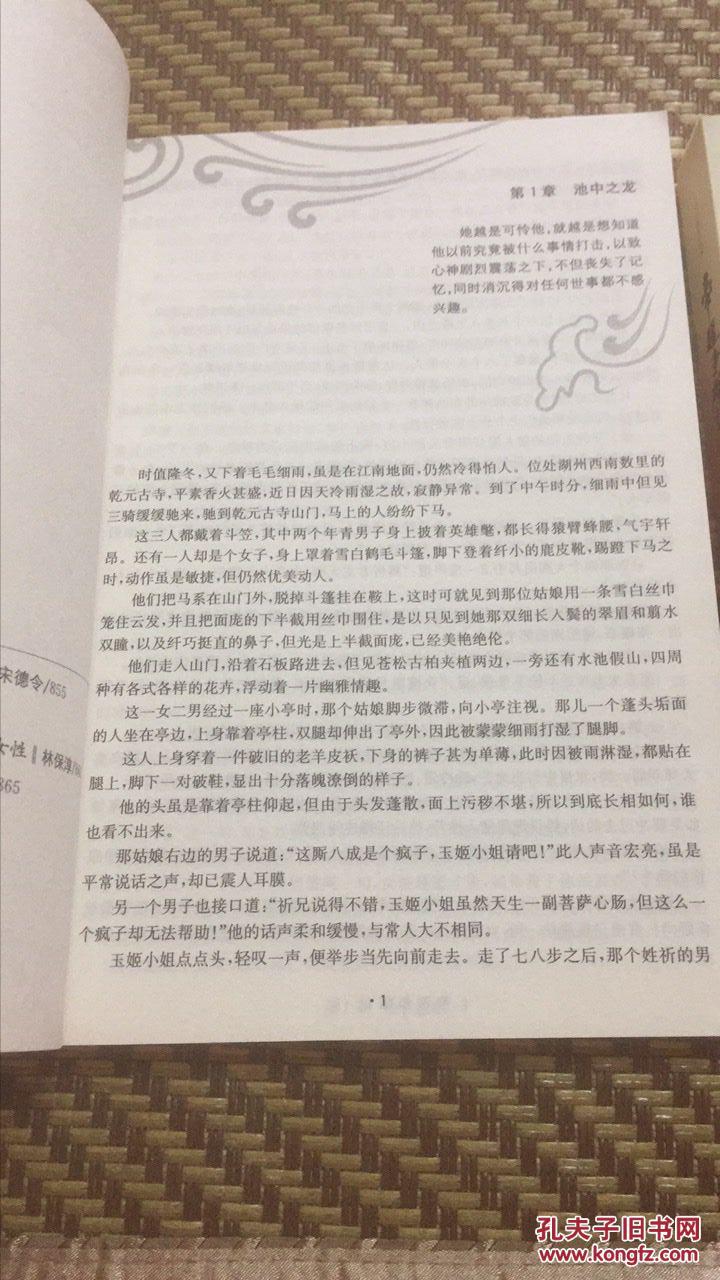 第1章 池中之龙
她越是可怜他,就越是想知道
他以前究竟被什么事情打击,以致
心神剧烈震荡之下,不但丧失了记
忆,同时消沉得对任何世事都不感
兴趣。
时值隆冬,又下着毛毛细雨,虽是在江南地面,仍然冷得怕人。位处湖州西南数里的
乾元古寺,平素香火甚盛,近日因天冷雨湿之故,寂静异常。到了中午时分,细雨中但见
三骑缓缓驰来,驰到乾元古寺山门,马上的人纷纷下马。
这三人都戴着斗笠,其中两个年青男子身上披着英雄氅,都长得猿臂蜂腰,气宇轩
昂。还有一人却是个女子,身上罩着雪白鹤毛斗篷,脚下登着纤小的鹿皮靴,踢蹬下马之
时,动作虽是敏捷,但仍然优美动人。
他们把马系在山门外,脱掉斗篷挂在鞍上,这时可就见到那位姑娘用一条雪白丝巾
笼住云发,并且把面庞的下半截用丝巾围住,是以只见到她那双细长入鬓的翠眉和翦水
双瞳,以及纤巧挺直的鼻子,但光是上半截面庞,已经美艳绝伦。
他们走入山门,沿着石板路进去,但见苍松古柏夹植两边,一旁还有水池假山,四周
种有各式各样的花卉,浮动着一片幽雅情趣。
这一女二男经过一座小亭时,那个姑娘脚步微滞,向小亭注视。那儿一个蓬头垢面
的人坐在亭边,上身靠着亭柱,双腿却伸出了亭外,因此被蒙蒙细雨打湿了腿脚。
这人上身穿着一件破旧的老羊皮袄,下身的裤子甚为单薄,此时因被雨淋湿,都贴在
腿上,脚下一对破鞋,显出十分落魄潦倒的样子。
他的头虽是靠着亭柱仰起,但由于头发蓬散,面上污秽不堪,所以到底长相如何,谁
也看不出来。
那姑娘右边的男子说道:“这厮八成是个疯子,玉姬小姐请吧!”此人声音宏亮,虽是
平常说话之声,却已震人耳膜。
另一个男子也接口道:“祈兄说得不错,玉姬小姐虽然天生一副菩萨心肠,但这么一
个疯子却无法帮助!”他的话声柔和缓慢,与常人大不相同。
玉姬小姐点点头,轻叹一声,便举步当先向前走去。走了七八步之后,那个姓祈的男
·1
宋德令/855
女性‖林保淳
865
孔夫子旧书网
www.kongfz.com